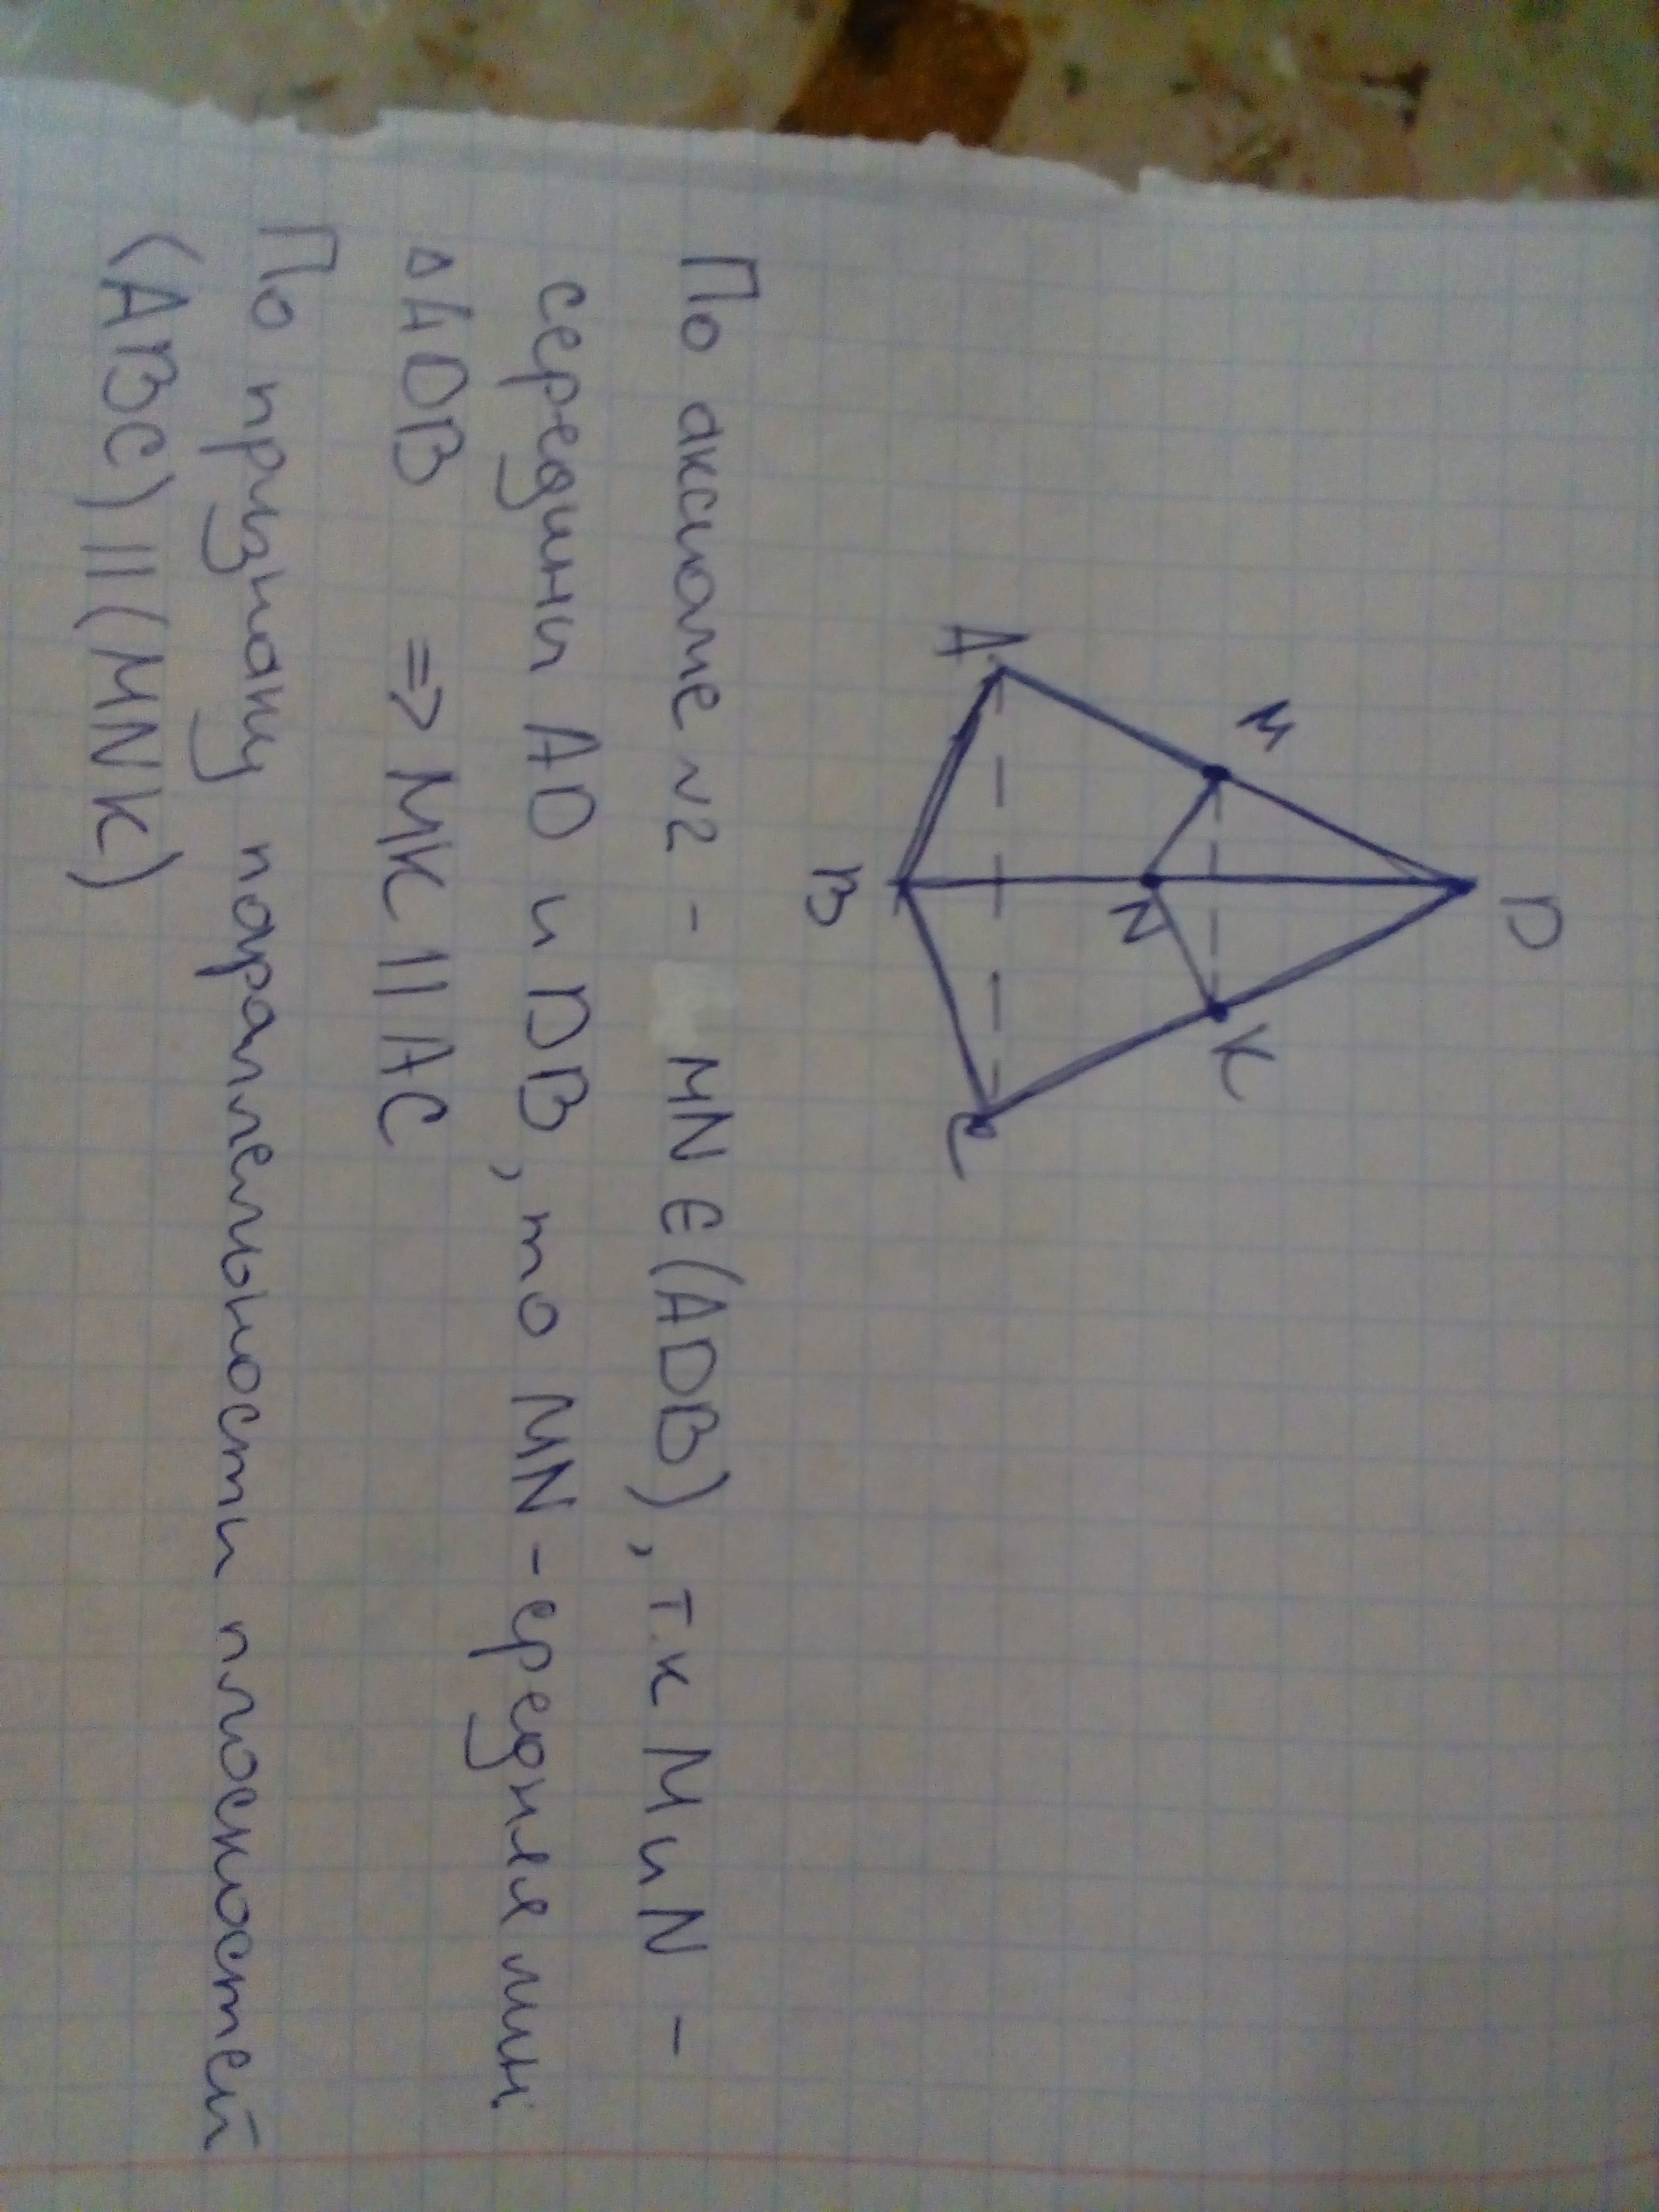 D
M
K
N
A
C
B
По аксиоме №2 - MN ∈ (ADB), т.к M и N -
середины AD и DB, то MN - средняя лин.
△ADB => MK || AC
По признаку параллельности плоскостей
(ABC) || (MNK)